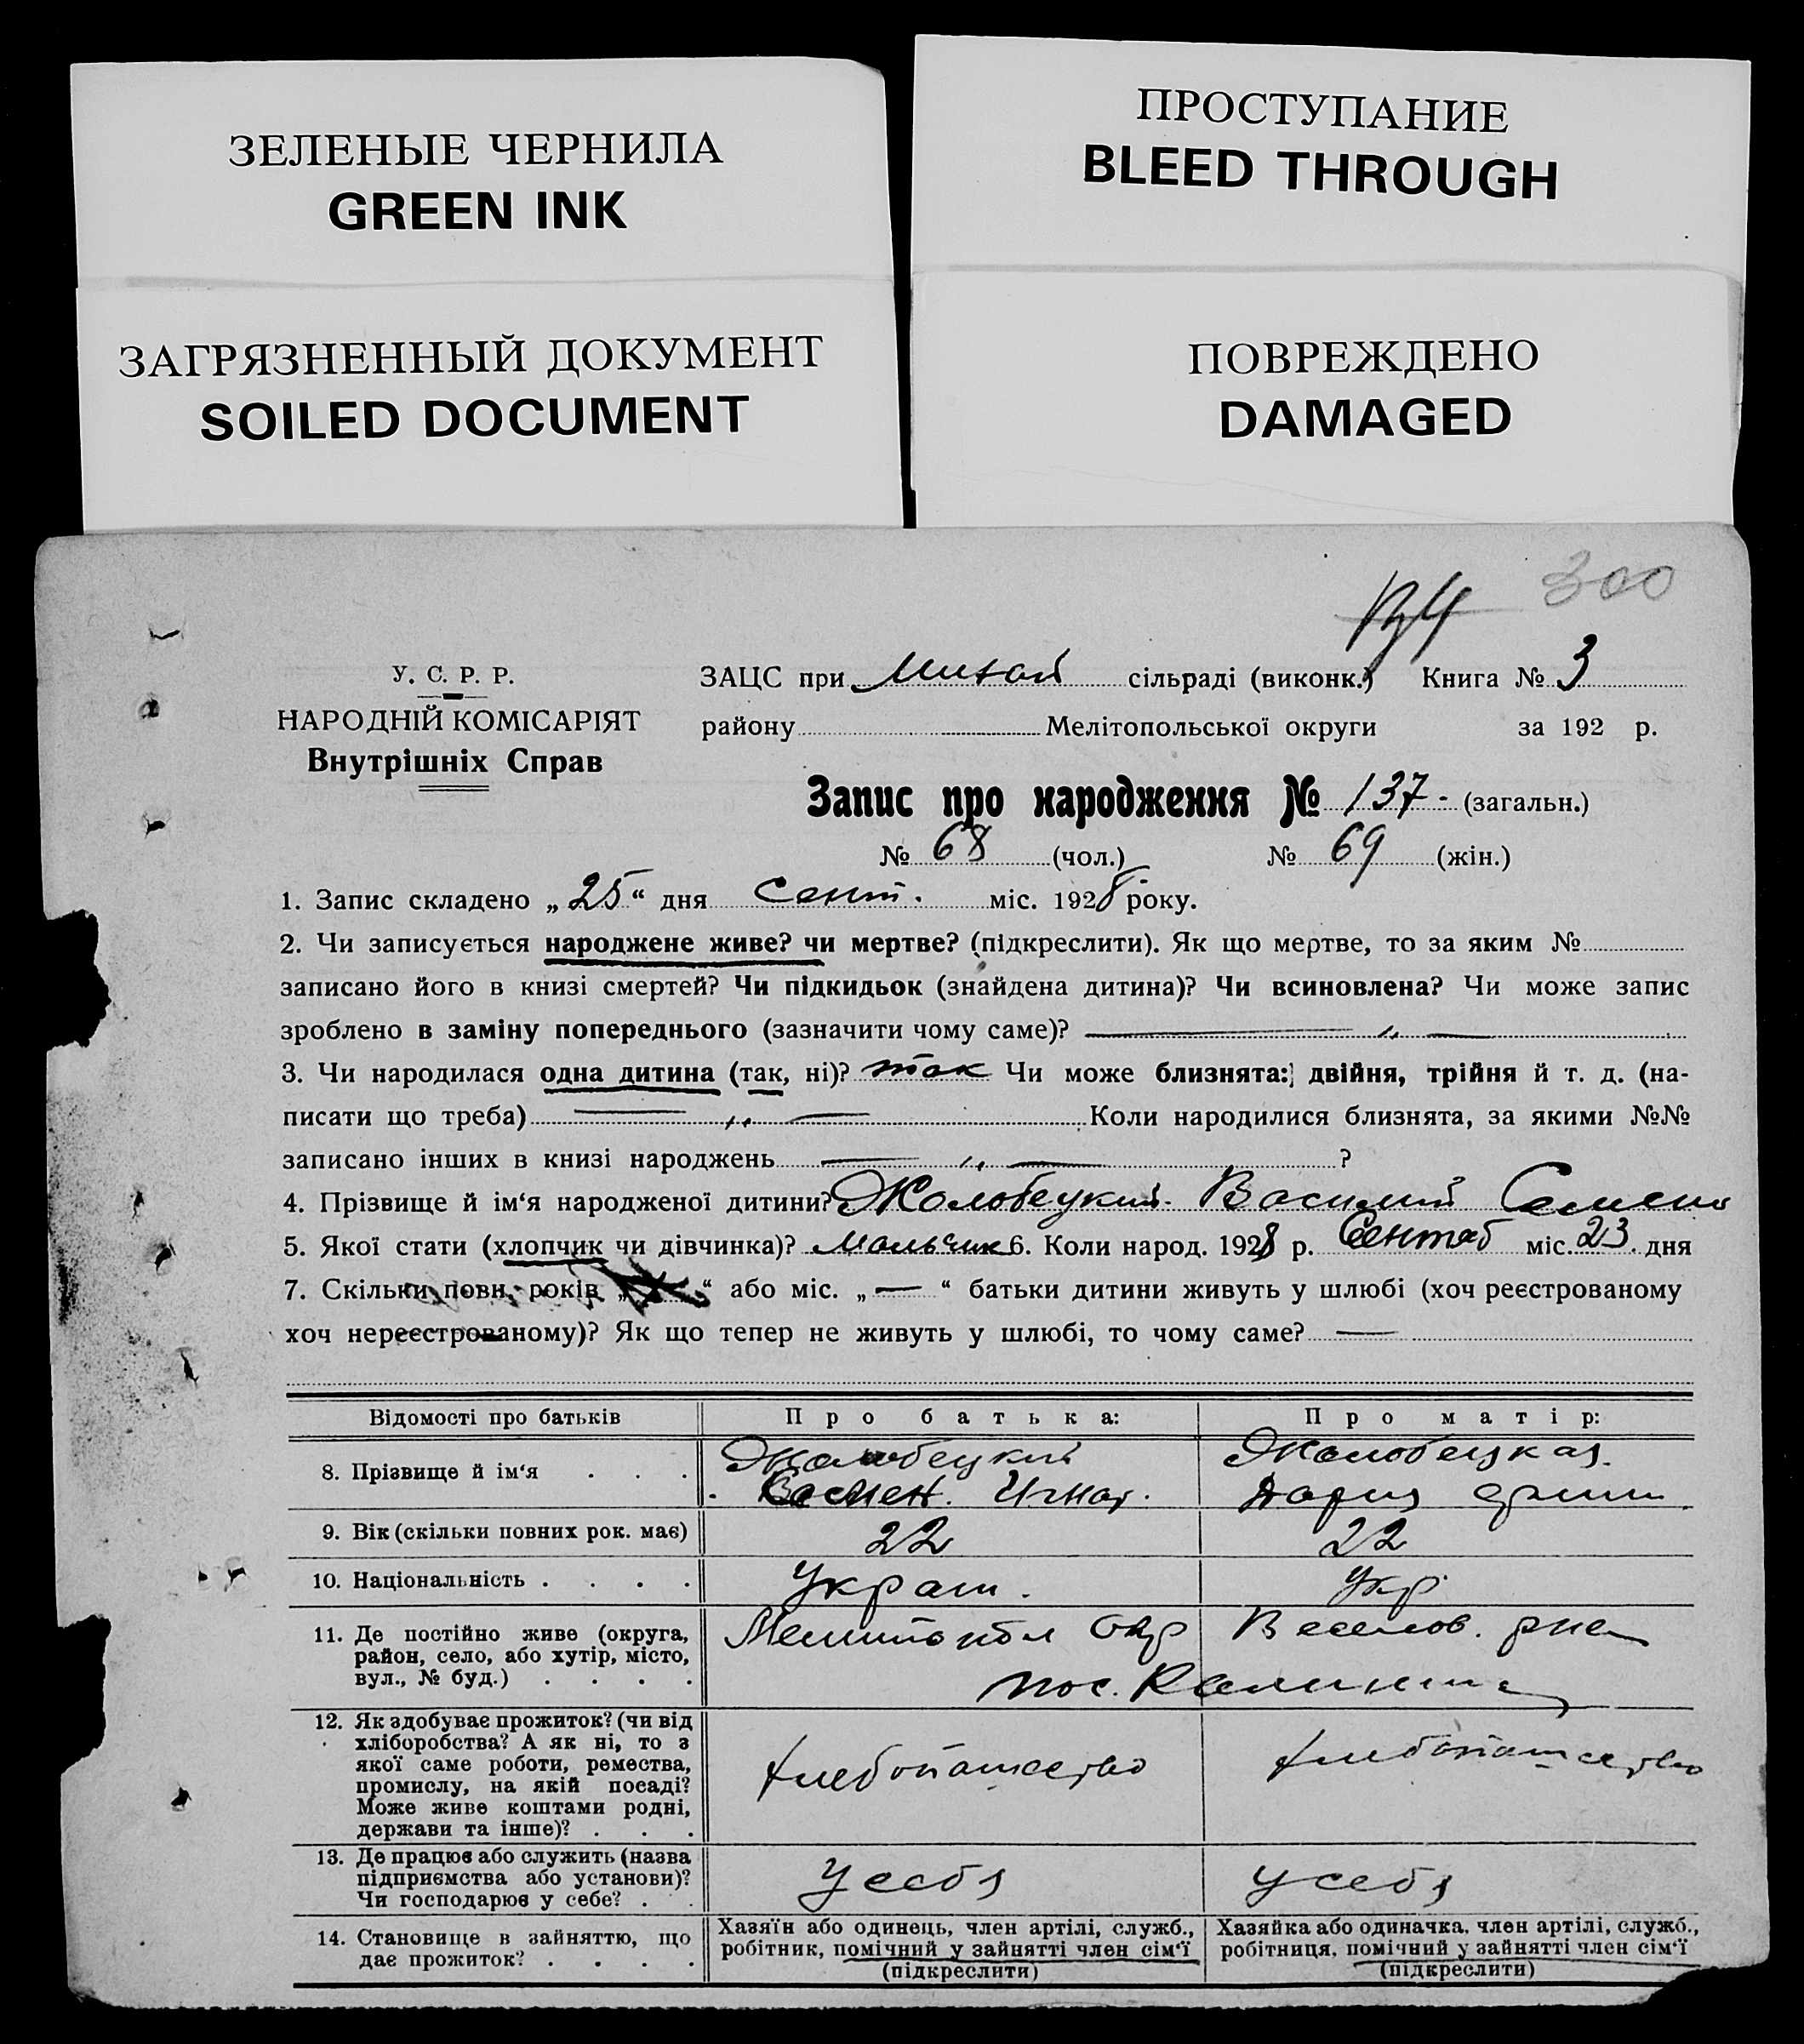 ЗЕЛЕНЫЕ ЧЕРНИЛА
GREEN INK
ЗАГРЯЗНЕННЫЙ ДОКУМЕНТ
SOILED DOCUMENT
ПРОСТУПАНИЕ
BLEED THROUGH
ПОВРЕЖДЕНО
DAMAGED
300
У. С. Р. Р.
НАРОДНІЙ КОМІСАРІЯТ
Внутрішніх Справ
ЗАЦС при сільраді (виконк.) Книга № 3
району Мелітопольської округи за 192 р.
Запис про народження № 137 - (загальн.)
№ 68 (чол.) № 69 (жін.)
1. Запис складено „ 25 “ дня Сент. міс. 1928 року.
2. Чи записується народжене живе? чи мертве? (підкреслити). Як що мертве, то за яким №
записано його в книзі смертей? Чи підкидьок (знайдена дитина)? Чи всиновлена? Чи може запис
зроблено в заміну попереднього (зазначити чому саме)? — „ —
3. Чи народилася одна дитина (так, ні)? так Чи може близнята: двійня, трійня й т. д. (на-
писати що треба) — „ — Коли народилися близнята, за якими №№
записано інших в книзі народжень — „ — ?
4. Прізвище й ім‘я народженої дитини? Жолобецкий Василий Семено
5. Якої стати (хлопчик чи дівчинка)? Мальчик 6. Коли народ. 1928 р. Сентяб міс. 23. дня
7. Скільки повн. років „ “ або міс. „ — “ батьки дитини живуть у шлюбі (хоч реєстрованому
хоч нереєстрованому)? Як що тепер не живуть у шлюбі, то чому саме? —
Відомості про батьків Про батька: Про матір:
8. Прізвище й ім‘я . . . Жолобецкий Жолобецкая.
Семен. Игнат. Дария
9. Вік (скільки повних рок. має) 22 22
10. Національність . . . . Украин. Укр.
11. Де постійно живе (округа, Мелитопол Окр Веселов. рна
район, село, або хутір, місто,
вул., № буд.) . . . . пос. Калинина
12. Як здобуває прожиток? (чи від
хліборобства? А як ні, то з
якої саме роботи, ремества, хлебопашество хлебопашество
промислу, на якій посаді?
Може живе коштами родні,
держави та інше)? . . .
13. Де працює або служить (назва
підприємства або установи)? У себя у себя
Чи господарює у себе? . .
14. Становище в зайняттю, що
дає прожиток? . . . .
Хазяїн або одинець, член артілі, служб.,
робітник, помічний у зайнятті член сім‘ї
(підкреслити)
Хазяйка або одиначка, член артілі, служб.,
робітниця, помічний у зайнятті член сім‘ї
(підкреслити)